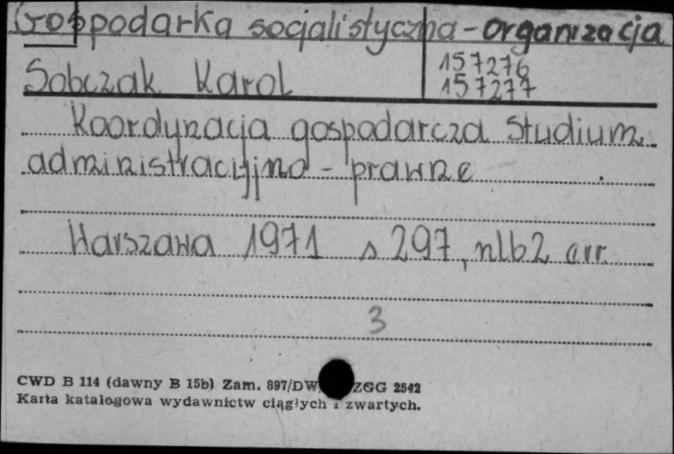 Gospodarka socjalistyczna - organizacja
Sobczak Karol
157276
157277
Koordynacja gospodarcza studium
administracyjno - prawne
Warszawa 1971 s 297, nlb2 err.
3
CWD B 114 (dawny B 15b) Zam. 897/DW ZGG 2542
Karta katalogowa wydawnictw ciągłych i zwartych.